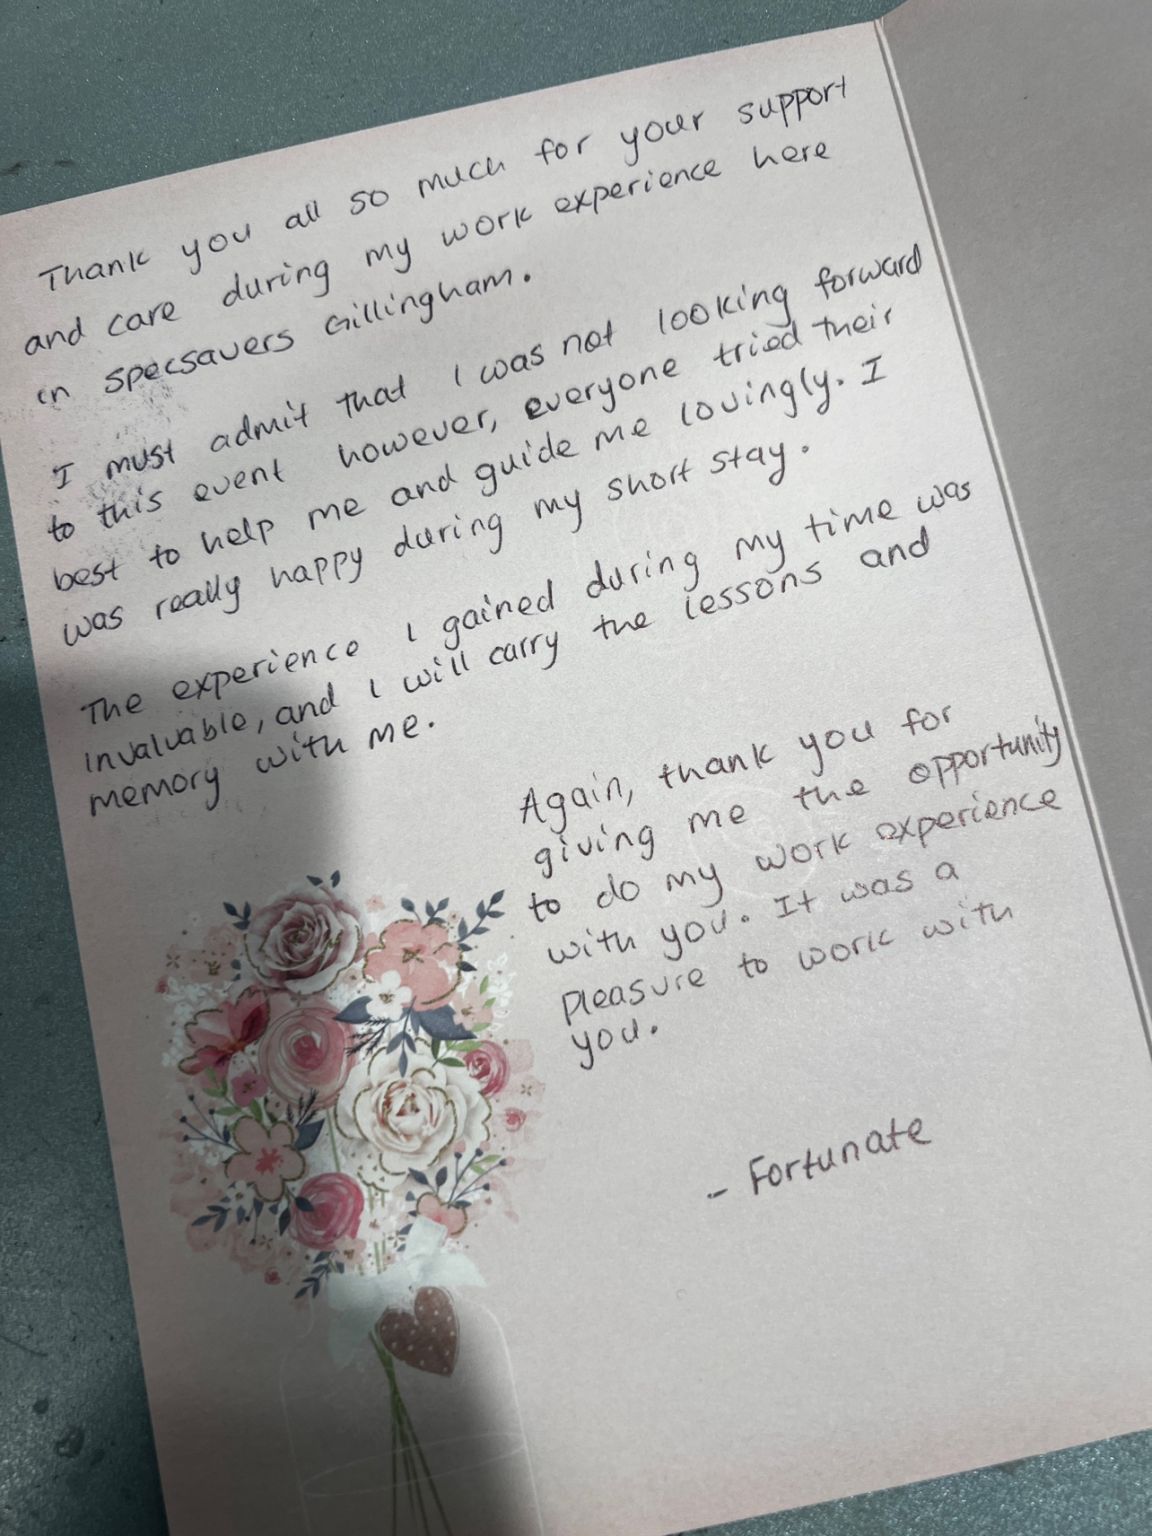 Thank you all so much for your support
and care during my work experience here
in Specsavers Gillingham.
I must admit that I was not looking forward
to this event however, everyone tried their
best to help me and guide me lovingly. I
was really happy during my short stay.
The experience I gained during my time was
invaluable, and I will carry the lessons and
memory with me.
Again, thank you for
giving me the opportunity
to do my work experience
with you. It was a
pleasure to work with
you.
- Fortunate